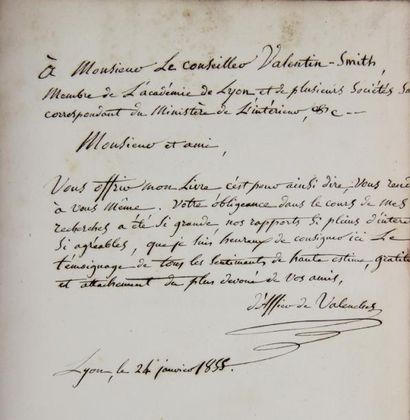 À Monsieur Le conseiller Valentin-Smith,
Membre de L'académie de Lyon et de plusieurs Sociétés Sa
correspondant du Ministère de L'intérieur, &c –
Monsieur et ami,
Vous offrir mon Livre c'est pour ainsi dire, vous rend
à vous même. Votre obligeance dans le cours de mes
recherches a été si grande, nos rapports si pleins d'intere
si agréables, que je suis heureux de consigner ici Le
témoignage de tous les sentiments de haute estime, gratit
et attachement du plus dévoué de vos amis,
d'Assier de Valenches
Lyon, le 24 janvier 1855.